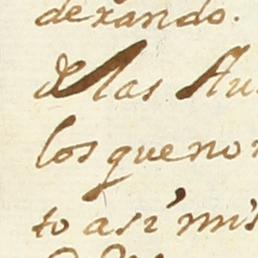 dexando.
de las Au
los que no
to asi mis